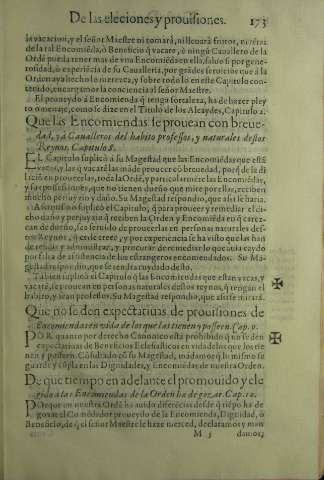 De las eleciones y prouisiones. 173
la vacacion, y el señor Maestre ni tomará, ni lleuará frutos, ni renta
de la tal Encomiẽda, ò Beneficio q̃ vacare, ò ningũ Cauallero de la Or-
dẽ pueda tener mas de vna Encomiẽda en ella, saluo si por gene-
rosidad, ò experiẽcia de su Caualleria, por grãdes seruicios que à la
Orden aya hecho lo merezca, y sobre todo lo en este Capitulo con-
tenido, encargamos la conciencia al señor Maestre.
El proueydo à Encomienda q̃ tenga fortaleza, ha de hazer pley
to omenaje, como se dize en el Titulo de los Alcaydes, Capitulo 2.
Que las Encomiendas se prouean con breue-
dad, y à Caualleros del habito professos, y naturales destos
Reynos. Capitulo 8.
EL Capitulo suplicò à su Magestad que las Encomiẽdas que està
vacas, y las q̃ vacarẽ las mãde proueer cõ breuedad, porq̃ de la di
lació en proueerlas, toda la Ordẽ, y particularmẽte las Encomiẽdas,
y sus possessiones, que no tienen dueño que mire por ellas, reciben
mucho perjuyzio y daño. Su Magestad respondio, que assi se haria.
Assimismo suplicò el Capitulo, q̃ para proueer y remediar el di-
cho daño y perjuyzio q̃ reciben la Orden y Encomiẽdas en q̃ carez-
can de dueño, seà seruido de proueerlas en personas naturales des-
tos Reynos, q̃ se cree, y por experiencia se ha visto que las hã
de residir y administrar, y procurar de remediar lo que iua caydo
por falta de assistencia de los estrangeros encomendados. Su Ma-
gestad respondio, que se tendra cuydado desto.
Tãbien suplicò el Capitulo q̃ las Encomiẽdas que estàn vacas, y
vacarẽ, se prouean en personas naturales destos reynos, q̃ tengan el
habito, y sean professos. Su Magestad respondiò, que assi se mirarà.
Que no se den expectatiuas de prouisiones de
Encomiendas en vida de los que las tienen y posseen. Cap. 9.
POR quanto por derecho Canonico està prohibido q̃ no se den
expectatiuas de Beneficios Eclesiasticos en vida de los que los tie-
nen y posseen. Cõsultado cõ su Magestad, mãdamos q̃ lo mismo se
guarde y cũpla en las Dignidades, y Encomiẽdas de nuestra Orden.
De que tiempo en adelante el promouido y ele-
gido à las Encomiendas de la Orden ha de gozar. Cap. 10.
Porque en nuestra Ordẽ ha auido diferẽcias desde q̃ tiẽpo ha de
gozar el Comẽdador proueydo de la Encomienda, Dignidad, ò
Beneficio, de q̃ el señor Maestre le haze merced, declaramos y man
M 5 damos;